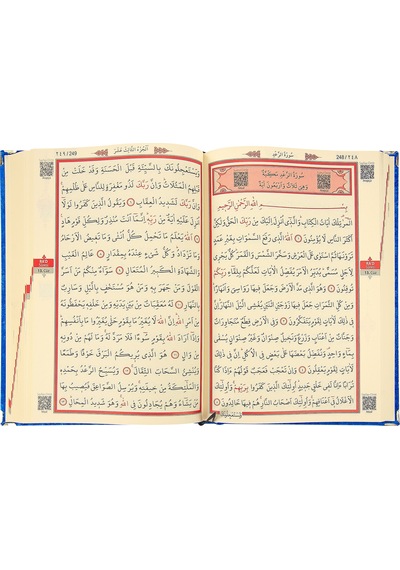 248/٢٤٨
سُورَةُ الرَّعْدِ
سُورَةُ الرَّعْدِ مَكِّيَّةٌ
وَهِيَ ثَلَاثٌ وَأَرْبَعُونَ آيَةً
بِسْمِ اللّٰهِ الرَّحْمٰنِ الرَّحِيمِ
الٓمٓرٰ تِلْكَ اٰيَاتُ الْكِتَابِ وَالَّذِي اُنْزِلَ اِلَيْكَ مِنْ رَبِّكَ الْحَقُّ وَلٰكِنَّ
اَكْثَرَ النَّاسِ لَا يُؤْمِنُونَ ١ اَللّٰهُ الَّذِي رَفَعَ السَّمٰوَاتِ بِغَيْرِ عَمَدٍ
تَرَوْنَهَا ثُمَّ اسْتَوٰى عَلَى الْعَرْشِ وَسَخَّرَ الشَّمْسَ وَالْقَمَرَ كُلٌّ يَجْرِي
لِاَجَلٍ مُسَمًّى يُدَبِّرُ الْاَمْرَ يُفَصِّلُ الْاٰيَاتِ لَعَلَّكُمْ بِلِقَاءِ رَبِّكُمْ
تُوقِنُونَ ٢ وَهُوَ الَّذِي مَدَّ الْاَرْضَ وَجَعَلَ فِيهَا رَوَاسِيَ وَاَنْهَارًا
وَمِنْ كُلِّ الثَّمَرَاتِ جَعَلَ فِيهَا زَوْجَيْنِ اثْنَيْنِ يُغْشِي الَّيْلَ النَّهَارَ اِنَّ فِي ذٰلِكَ
لَاٰيَاتٍ لِقَوْمٍ يَتَفَكَّرُونَ ٣ وَفِي الْاَرْضِ قِطَعٌ مُتَجَاوِرَاتٌ
وَجَنَّاتٌ مِنْ اَعْنَابٍ وَزَرْعٌ وَنَخِيلٌ صِنْوَانٌ وَغَيْرُ صِنْوَانٍ يُسْقٰى
بِمَاءٍ وَاحِدٍ وَنُفَضِّلُ بَعْضَهَا عَلٰى بَعْضٍ فِي الْاُكُلِ اِنَّ فِي ذٰلِكَ
لَاٰيَاتٍ لِقَوْمٍ يَعْقِلُونَ ٤ وَاِنْ تَعْجَبْ فَعَجَبٌ قَوْلُهُمْ ءَاِذَا كُنَّا
تُرَابًا ءَاِنَّا لَفِي خَلْقٍ جَدِيدٍ اُولٰئِكَ الَّذِينَ كَفَرُوا بِرَبِّهِمْ وَاُولٰئِكَ
الْاَغْلَالُ فِي اَعْنَاقِهِمْ وَاُولٰئِكَ اَصْحَابُ النَّارِ هُمْ فِيهَا خَالِدُونَ ٥
اَلْجُزْءُ الثَّالِثَ عَشَرَ
249/٢٤٩
وَيَسْتَعْجِلُونَكَ بِالسَّيِّئَةِ قَبْلَ الْحَسَنَةِ وَقَدْ خَلَتْ مِنْ
قَبْلِهِمُ الْمَثُلَاتُ وَاِنَّ رَبَّكَ لَذُو مَغْفِرَةٍ لِلنَّاسِ عَلٰى ظُلْمِهِمْ
وَاِنَّ رَبَّكَ لَشَدِيدُ الْعِقَابِ ٦ وَيَقُولُ الَّذِينَ كَفَرُوا لَوْلَا
اُنْزِلَ عَلَيْهِ اٰيَةٌ مِنْ رَبِّهِ اِنَّمَا اَنْتَ مُنْذِرٌ وَلِكُلِّ قَوْمٍ هَادٍ
٧ اَللّٰهُ يَعْلَمُ مَا تَحْمِلُ كُلُّ اُنْثٰى وَمَا تَغِيضُ الْاَرْحَامُ
وَمَا تَزْدَادُ وَكُلُّ شَيْءٍ عِنْدَهُ بِمِقْدَارٍ ٨ عَالِمُ الْغَيْبِ
وَالشَّهَادَةِ الْكَبِيرُ الْمُتَعَالِ ٩ سَوَاءٌ مِنْكُمْ مَنْ اَسَرَّ
الْقَوْلَ وَمَنْ جَهَرَ بِهِ وَمَنْ هُوَ مُسْتَخْفٍ بِالَّيْلِ وَسَارِبٌ
بِالنَّهَارِ ١٠ لَهُ مُعَقِّبَاتٌ مِنْ بَيْنِ يَدَيْهِ وَمِنْ خَلْفِهِ يَحْفَظُونَهُ
مِنْ اَمْرِ اللّٰهِ اِنَّ اللّٰهَ لَا يُغَيِّرُ مَا بِقَوْمٍ حَتّٰى يُغَيِّرُوا مَا بِاَنْفُسِهِمْ
وَاِذَا اَرَادَ اللّٰهُ بِقَوْمٍ سُوءًا فَلَا مَرَدَّ لَهُ وَمَا لَهُمْ مِنْ دُونِهِ
مِنْ وَالٍ ١١ هُوَ الَّذِي يُرِيكُمُ الْبَرْقَ خَوْفًا وَطَمَعًا
وَيُنْشِئُ السَّحَابَ الثِّقَالَ ١٢ وَيُسَبِّحُ الرَّعْدُ بِحَمْدِهِ
وَالْمَلٰئِكَةُ مِنْ خِيفَتِهِ وَيُرْسِلُ الصَّوَاعِقَ فَيُصِيبُ بِهَا
مَنْ يَشَاءُ وَهُمْ يُجَادِلُونَ فِي اللّٰهِ وَهُوَ شَدِيدُ الْمِحَالِ ١٣